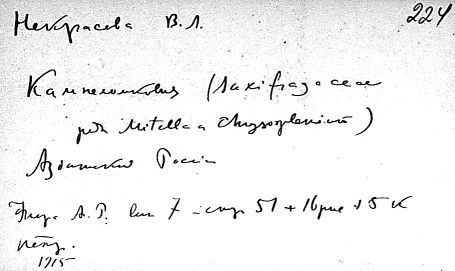 Некрасова В.Л. 224
Камнеломковыя (Saxifragaceae
роды Mitella и Chrysosplenium)
Азиатской России
Флора А.Р. вып 7 - стр 51 + 1 рис + 5 к
петр.
1915